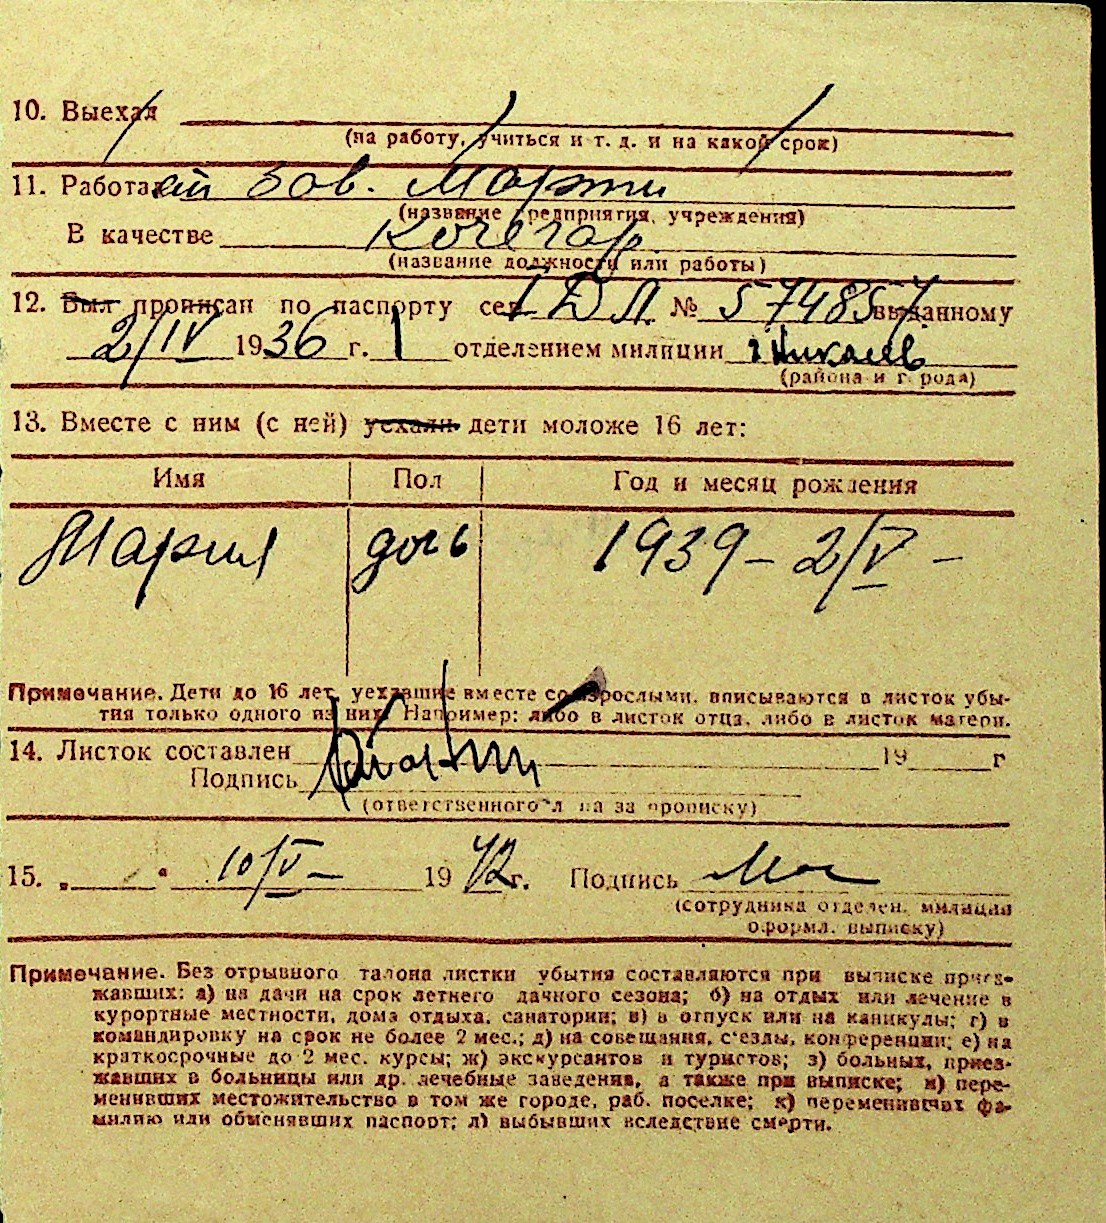 10. Выехал
(на работу, учиться и т. д. и на какой срок)
11. Работает Зав. Марти
(название предприятия, учреждения)
В качестве Кочегар
(название должности или работы)
12. Был прописан по паспорту сер. № 574857 выданному
2/IV 1936 г. 1 отделением милиции г Николаев
(района и города)
13. Вместе с ним (с ней) уехали дети моложе 16 лет:
Имя Пол Год и месяц рождения
Мария дочь 1939 - 2/V -
Примечание. Дети до 16 лет, уехавшие вместе со взрослыми, вписываются в листок убы-
тия только одного из них. Например: либо в листок отца, либо в листок матери.
14. Листок составлен 19 г
Подпись
(ответственного л на за прописку)
15. „ “ 10/V - 19 42 г. Подпись
(сотрудника отделен. милиции
оформл. выписку)
Примечание. Без отрывного талона листки убытия составляются при выписке приез-
жавших: а) на дачи на срок летнего дачного сезона; б) на отдых или лечение в
курортные местности, дома отдыха, санатории; в) в отпуск или на каникулы; г) в
командировку на срок не более 2 мес.; д) на совещания, с'езды, конференции; е) на
краткосрочные до 2 мес. курсы; ж) экскурсантов и туристов; з) больных, приез-
жавших в больницы или др. лечебные заведения, а также при выписке; и) пере-
менивших местожительство в том же городе, раб. поселке; к) переменивших фа-
милию или обменявших паспорт; л) выбывших вследствие смерти.